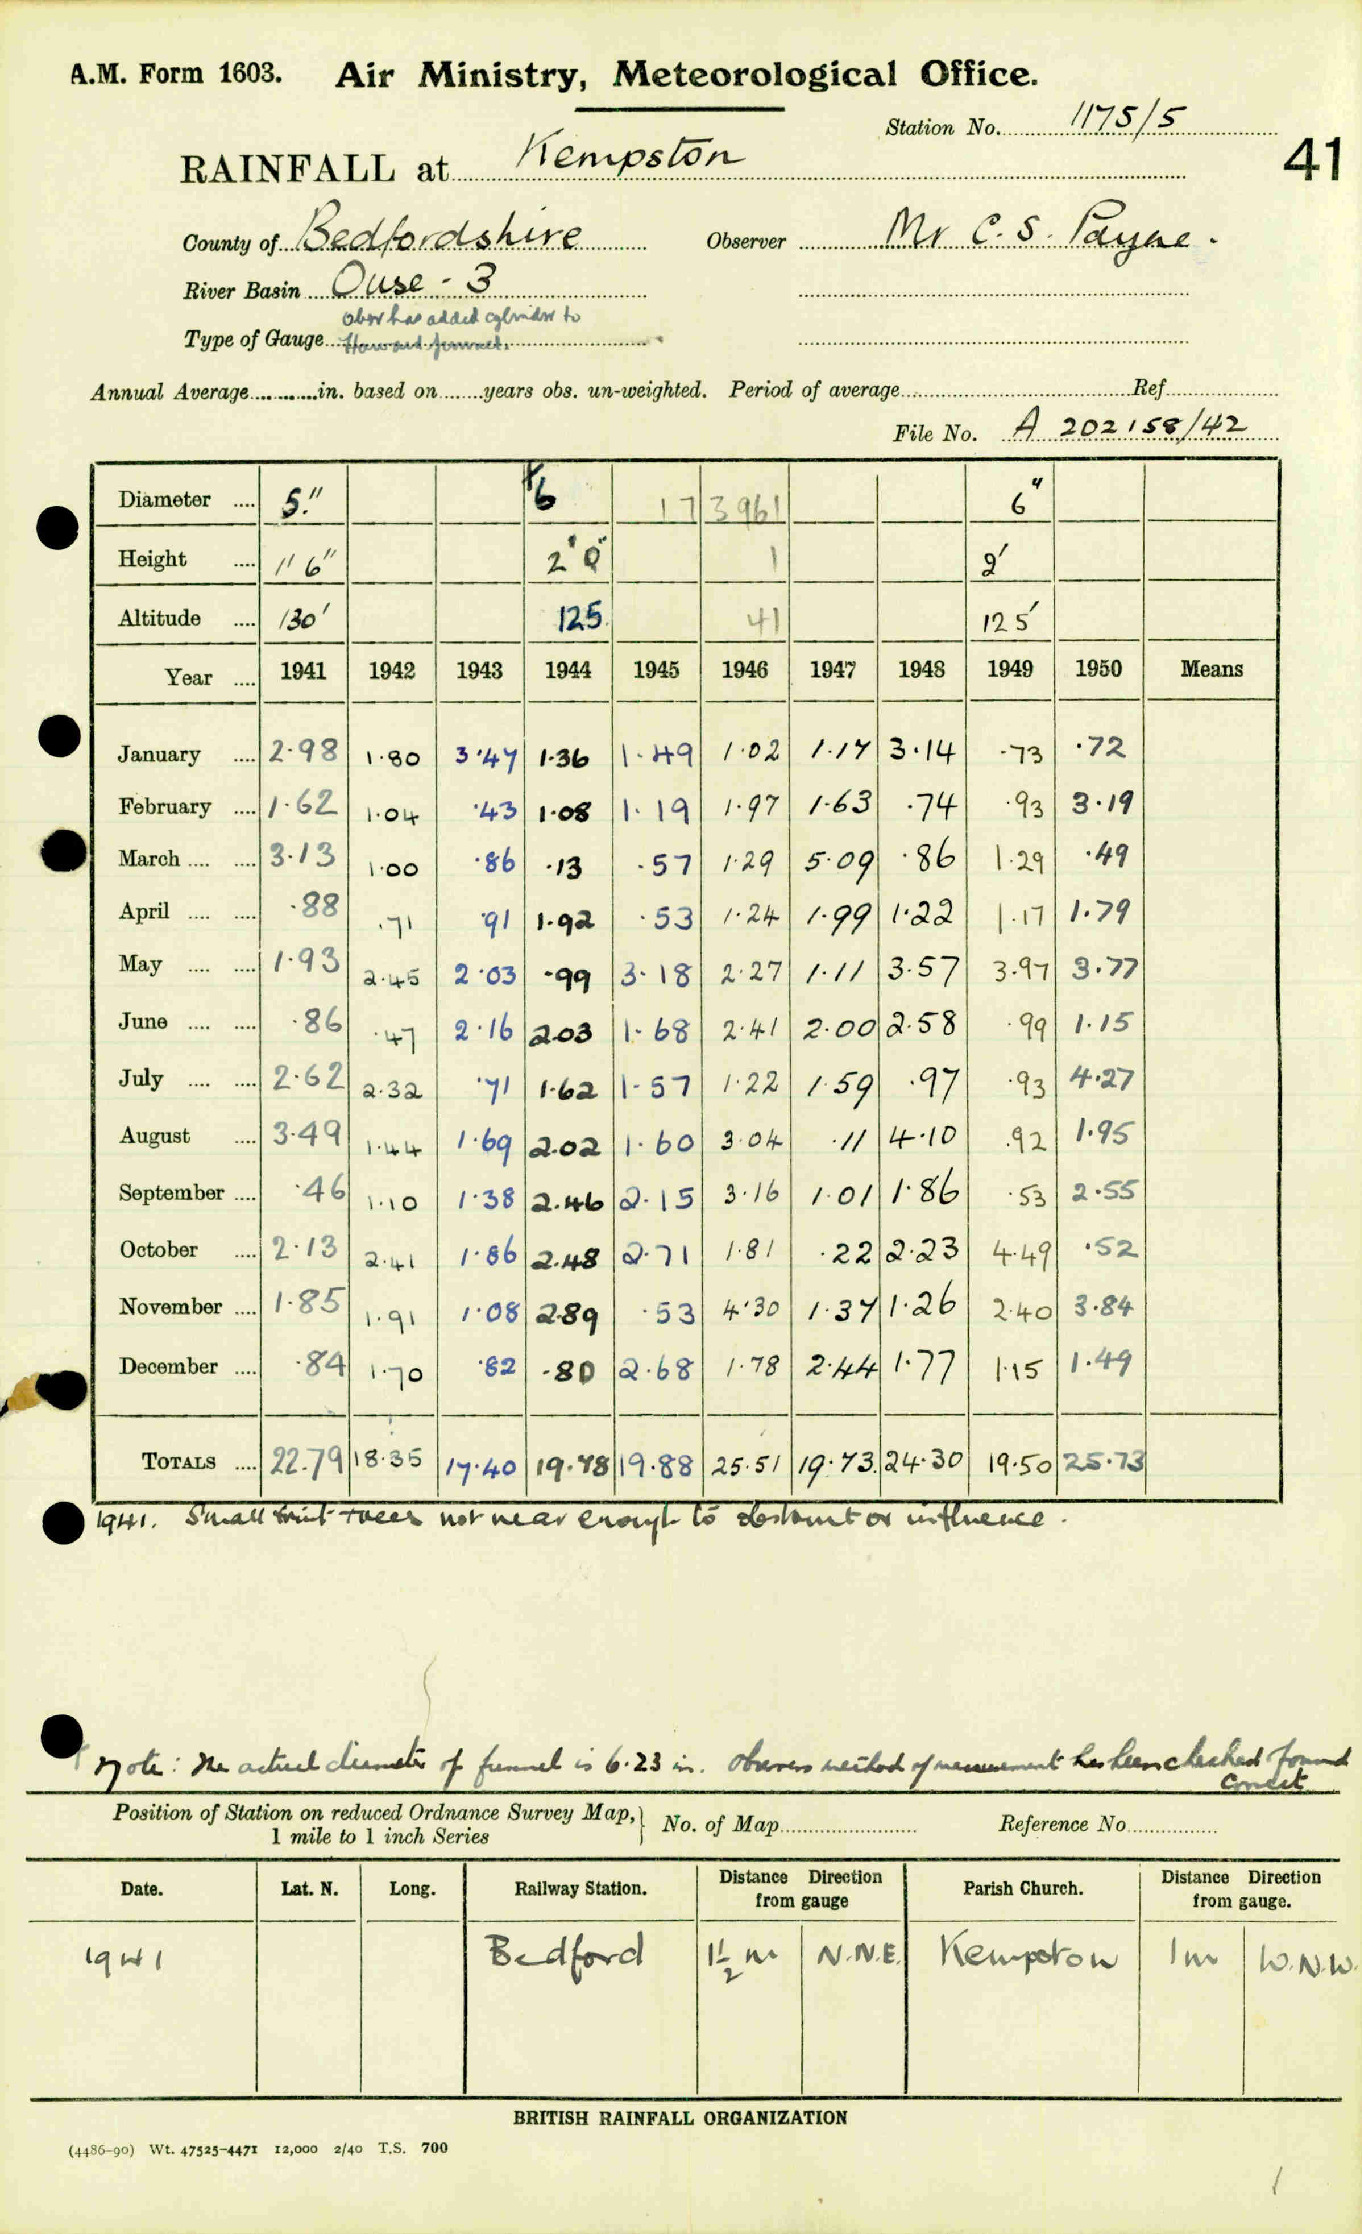 A.M. Form 1603. Air Ministry, Meteorological Office.
Station No. 1175/5
41
RAINFALL at Kempston
County of Bedfordshire Observer Mr C. S. Payne.
River Basin Ouse - 3
Obsr has added cylinder to
Type of Gauge Howard funnel.
Annual Average in. based on years obs. un-weighted. Period of average Ref
File No. A 202158/42
Diameter .... 5." +6 173961 6"
Height .... 1' 6" 2' 0" 1 2'
Altitude .... 130' 125 41 125'
Year .... 1941 1942 1943 1944 1945 1946 1947 1948 1949 1950 Means
January .... 2.98 1.80 3.47 1.36 1.49 1.02 1.17 3.14 .73 .72
February .... 1.62 1.04 .43 1.08 1.19 1.97 1.63 .74 .93 3.19
March .... .... 3.13 1.00 .86 .13 .57 1.29 5.09 .86 1.29 .49
April .... .... .88 .71 .91 1.92 .53 1.24 1.99 1.22 1.17 1.79
May .... .... 1.93 2.45 2.03 .99 3.18 2.27 1.11 3.57 3.97 3.77
June .... .... .86 .47 2.16 2.03 1.68 2.41 2.00 2.58 .99 1.15
July .... .... 2.62 2.32 .71 1.62 1.57 1.22 1.59 .97 .93 4.27
August .... 3.49 1.44 1.69 2.02 1.60 3.04 .11 4.10 .92 1.95
September .... .46 1.10 1.38 2.46 2.15 3.16 1.01 1.86 .53 2.55
October .... 2.13 2.41 1.86 2.48 2.71 1.81 .22 2.23 4.49 .52
November .... 1.85 1.91 1.08 2.89 .53 4.30 1.37 1.26 2.40 3.84
December .... .84 1.70 .82 .80 2.68 1.78 2.44 1.77 1.15 1.49
TOTALS .... 22.79 18.35 17.40 19.78 19.88 25.51 19.73 24.30 19.50 25.73
1941. Small fruit trees not near enough to obstruct or influence.
+ Note: The actual diameter of funnel is 6.23 in. Observers method of measurement has been checked & found
correct
Position of Station on reduced Ordnance Survey Map, 1 mile to 1 inch Series } No. of Map Reference No
Date. Lat. N. Long. Railway Station. Distance Direction from gauge Parish Church. Distance Direction from gauge.
1941 Bedford 1½ m N.N.E. Kempston 1m W.N.W.
BRITISH RAINFALL ORGANIZATION
(4486-90) Wt. 47525-4471 12,000 2/40 T.S. 700
1